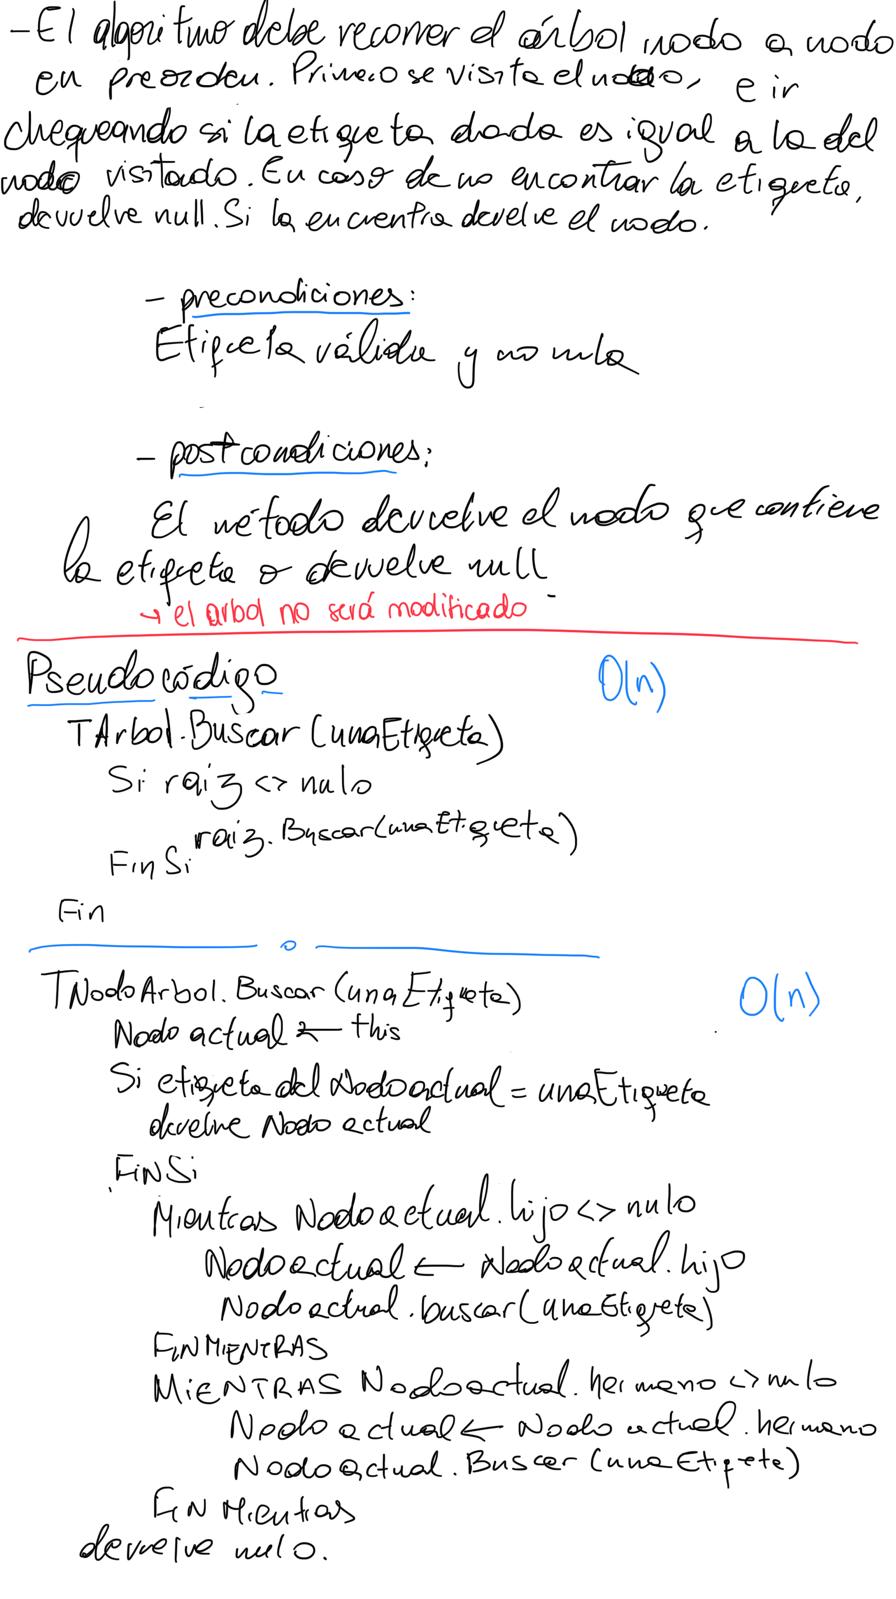 - El algoritmo debe recorrer el árbol nodo a nodo
en preorden. Primero se visita el nodo, e ir
chequeando si la etiqueta dada es igual a la del
nodo visitado. En caso de no encontrar la etiqueta,
devuelve null. Si la encuentra develve el nodo.
- precondiciones:
Etiqueta válida y no nula
- postcondiciones:
El método devuelve el nodo que contiene
la etiqueta o devuelve null.
→ el arbol no será modificado
Pseudocódigo O(n)
TArbol.Buscar (unaEtiqueta)
Si raiz <> nulo
raiz.Buscar(unaEtiqueta)
Fin Si
Fin
TNodoArbol.Buscar (unaEtiqueta) O(n)
Nodo actual ← this
Si etiqueta del Nodo actual = unaEtiqueta
devuelve Nodo actual
FinSi
Mientras Nodo actual.hijo <> nulo
Nodo actual ← Nodo actual.hijo
Nodo actual.buscar(unaEtiqueta)
FIN MIENTRAS
MIENTRAS Nodo actual.hermano <> nulo
Nodo actual ← Nodo actual.hermano
Nodo actual.Buscar (unaEtiqueta)
FIN Mientras
devuelve nulo.